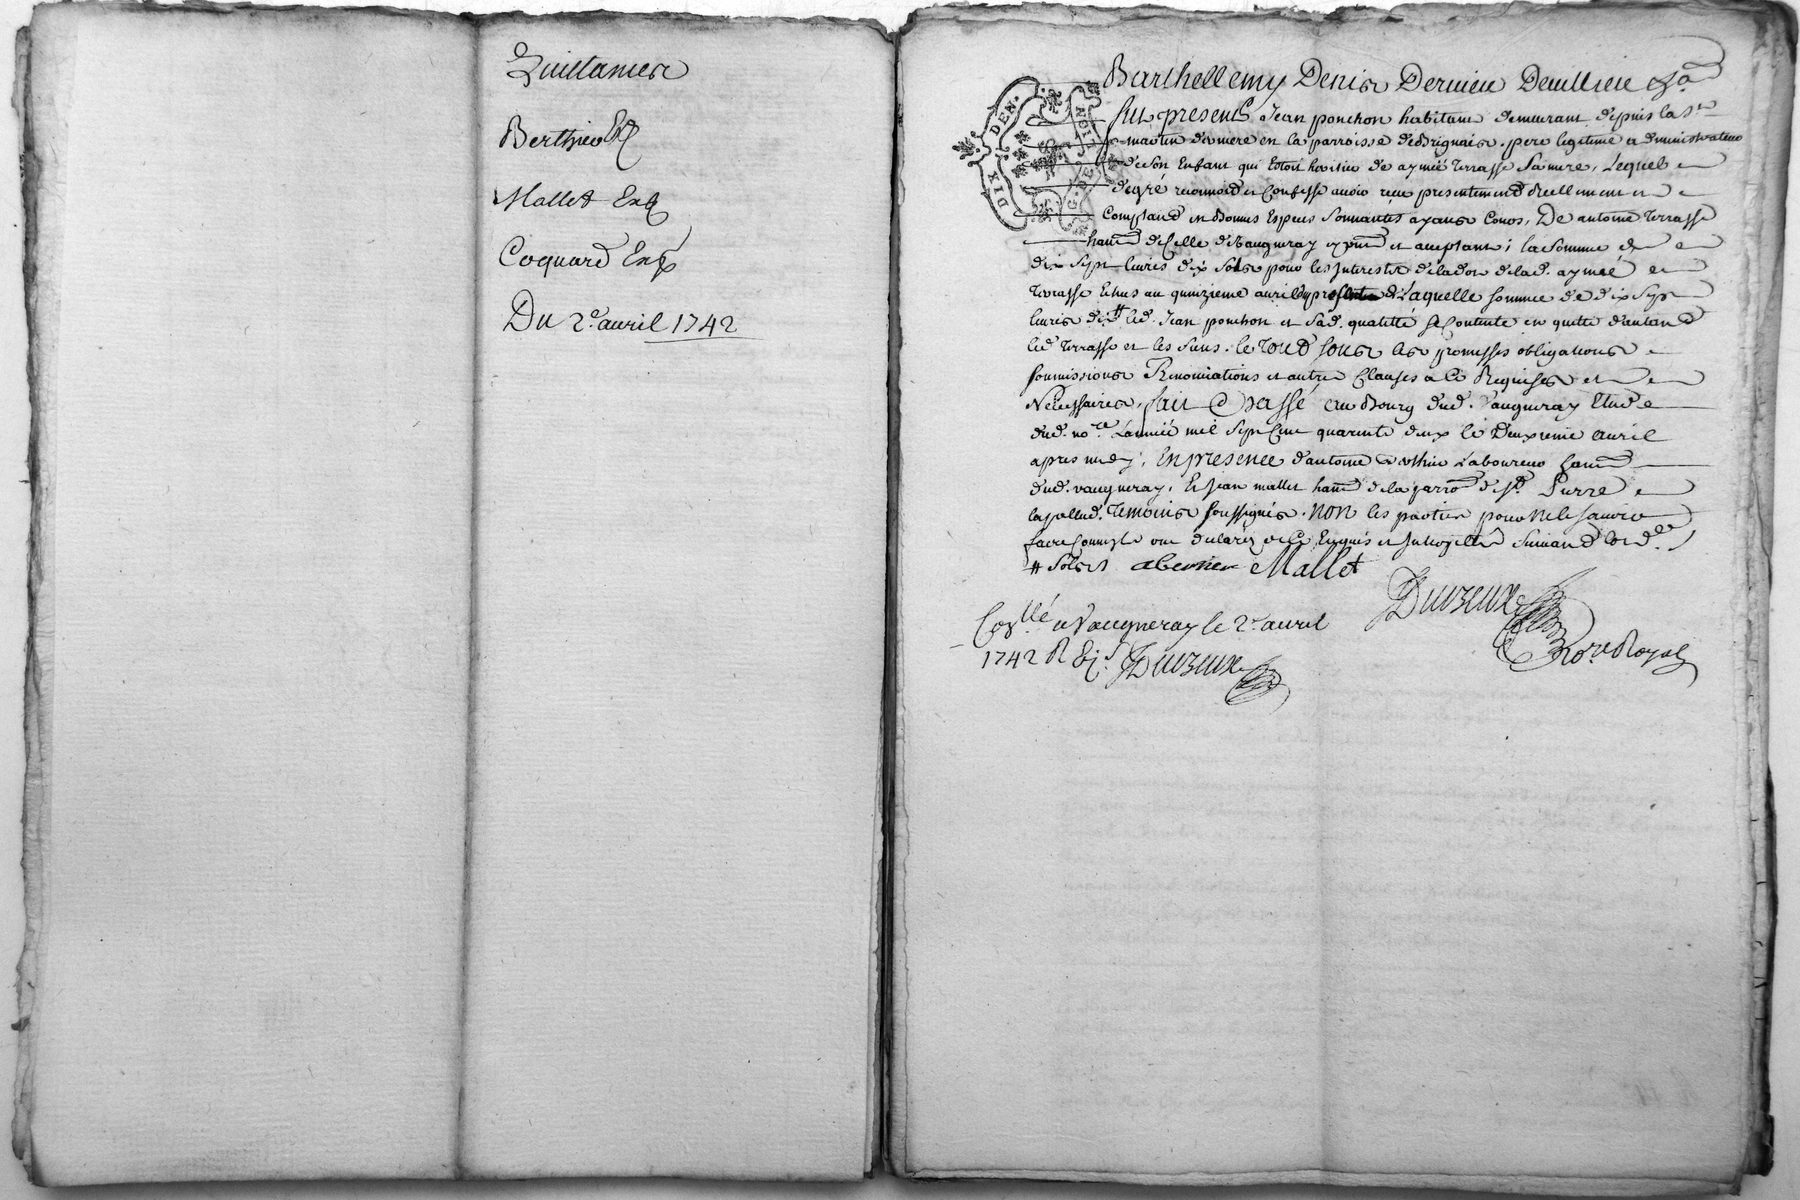 Quittances
Berthieu
Mallet Exp
Coquard Exp
Du 2e. avril 1742
DIX DEN.
G. DE LION
Barthellemy Denis
fut present Jean ponchon habitant demeurant depuis la St
martin derniere en la parroisse de Brignais, pere legitime administrateur
de son Enfant qui Estoit heritier de aymée terrasse sa mere, Lequel
de gré reconnoit et Confesse avoir reçu presentement Reellement et
Comptand en bonnes Especes sonnantes ayans Cours, De antoine terrasse
habt de Celle de Vaugneray et acceptant; la somme de
dix sept livres dix sols pour les Interests de la dot de lad. aymée
terrasse Echus au quinzieme avril Laquelle somme de dix sept
livres dix # led. Jean ponchon et sad. qualitté se Contente en quitte d'autant
led terrasse et les siens. le tout sous les promesses obligations
soumissions Renonciations et autres Clauses a Ce Requises et
Necessaires, fait & passé au Bourg dud. Vaugneray Etude
dud. nore. L'année mil sept Cent quarente deux le Deuxieme avril
apres midy, En presence d'antoine Laboureur habt
dud. vaugneray, Et Jean mallet habt de la parroe de St Pierre
lapallud. temoins soussignés, non les parties pour ne le sçavoir
faire Comme ils ont declaré de Ce Enquis et Interpellé suivant l'ord.ce
# sols Mallet
Duvzeux
Nore. Royal
Conllé a Vaugneray le 2e. avril
1742 R Duvzeux